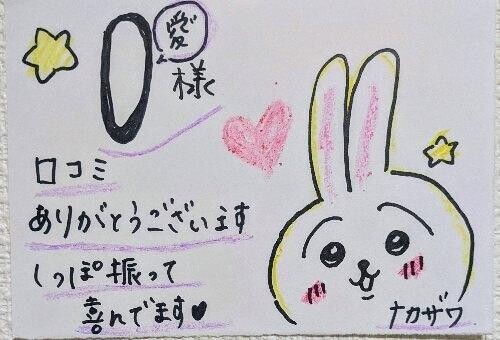 0
愛
様
口コミ
ありがとうございます
しっぽ振って
喜んでます♥
ナカザワ